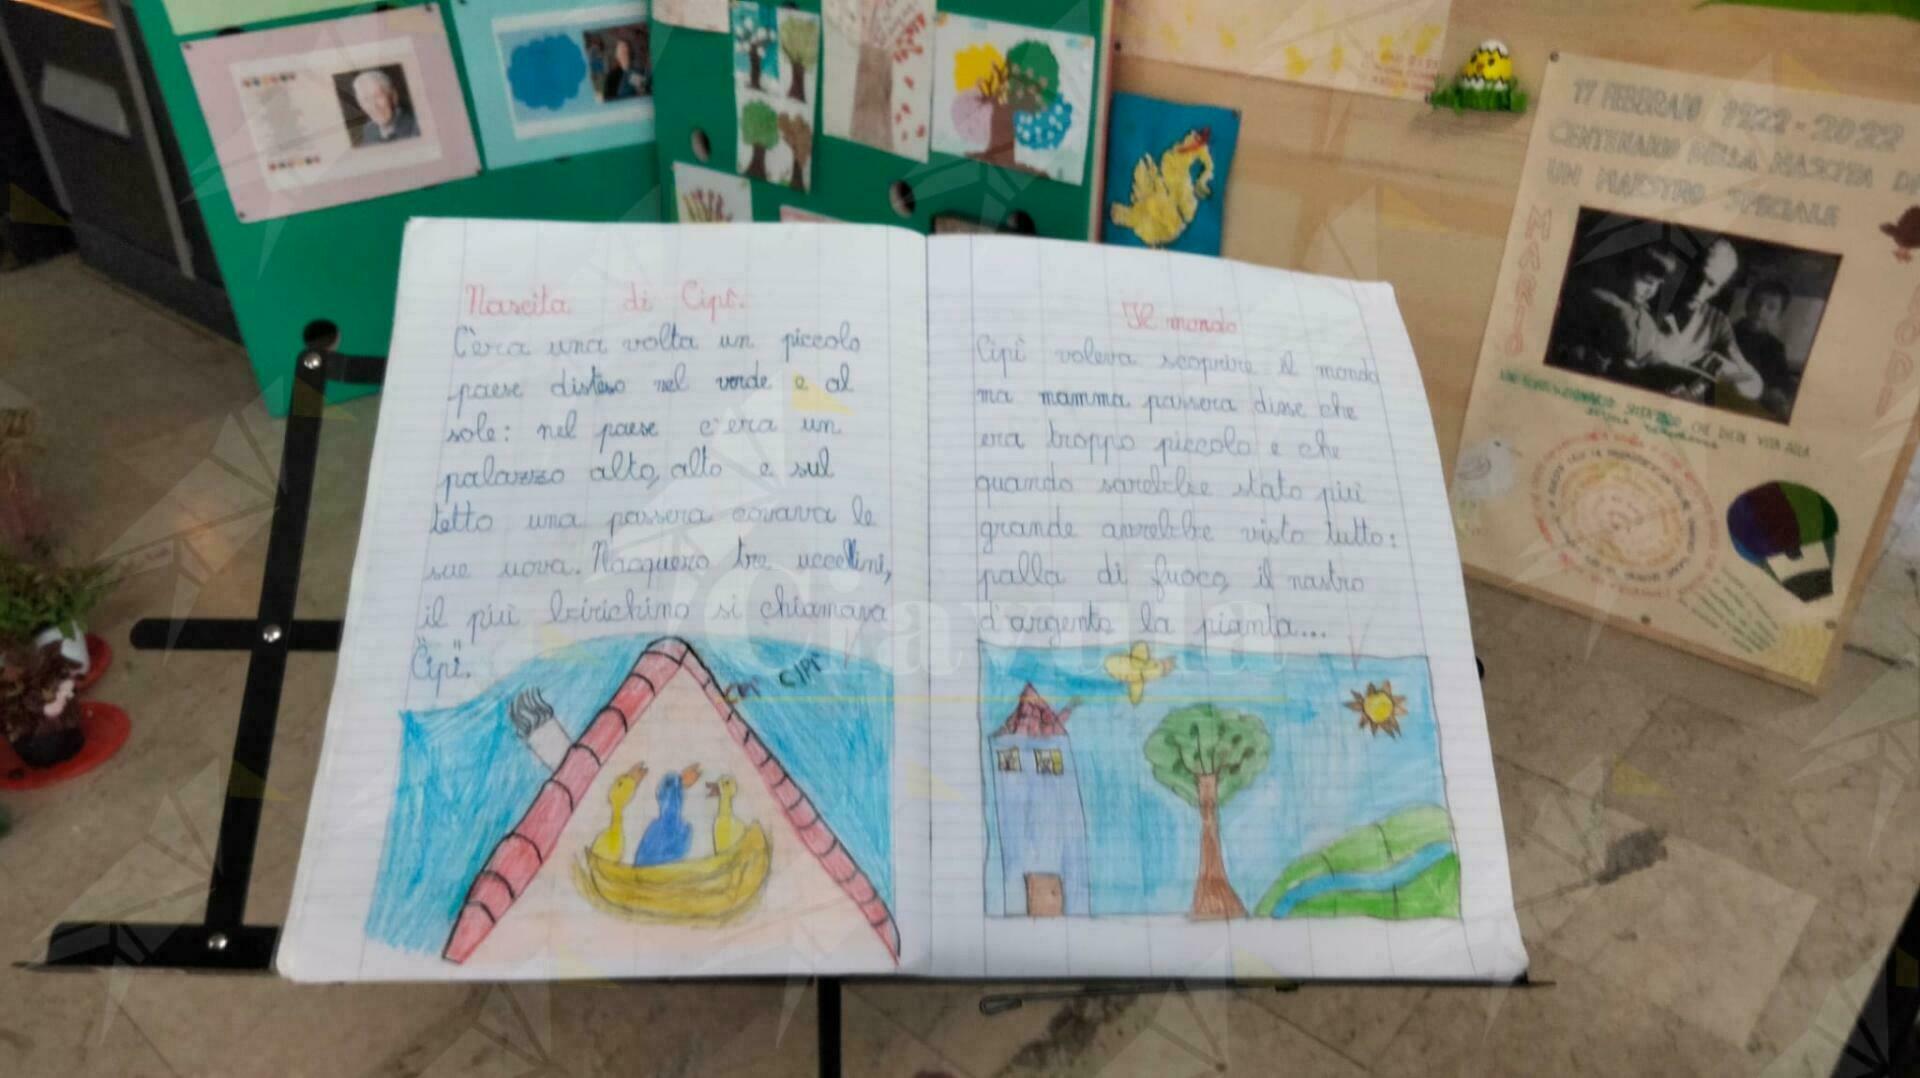 Nascita di Cipì.
C'era una volta un piccolo
paese disteso nel verde e al
sole: nel paese c'era un
palazzo alto, alto e sul
tetto una passera covava le
sue uova. Nacquero tre uccellini,
il più birichino si chiamava
"Cipì".
CIPÌ CIPÌ
Il mondo
Cipì voleva scoprire il mondo
ma mamma passera disse che
era troppo piccolo e che
quando sarebbe stato più
grande avrebbe visto tutto:
palla di fuoco, il nastro
d'argento la pianta...
17 FEBBRAIO 1922-2022
CENTENARIO DELLA NASCITA DI
UN MAESTRO SPECIALE
MARIO
LODI
CHE DIEDE VITA ALLA
Ciavula